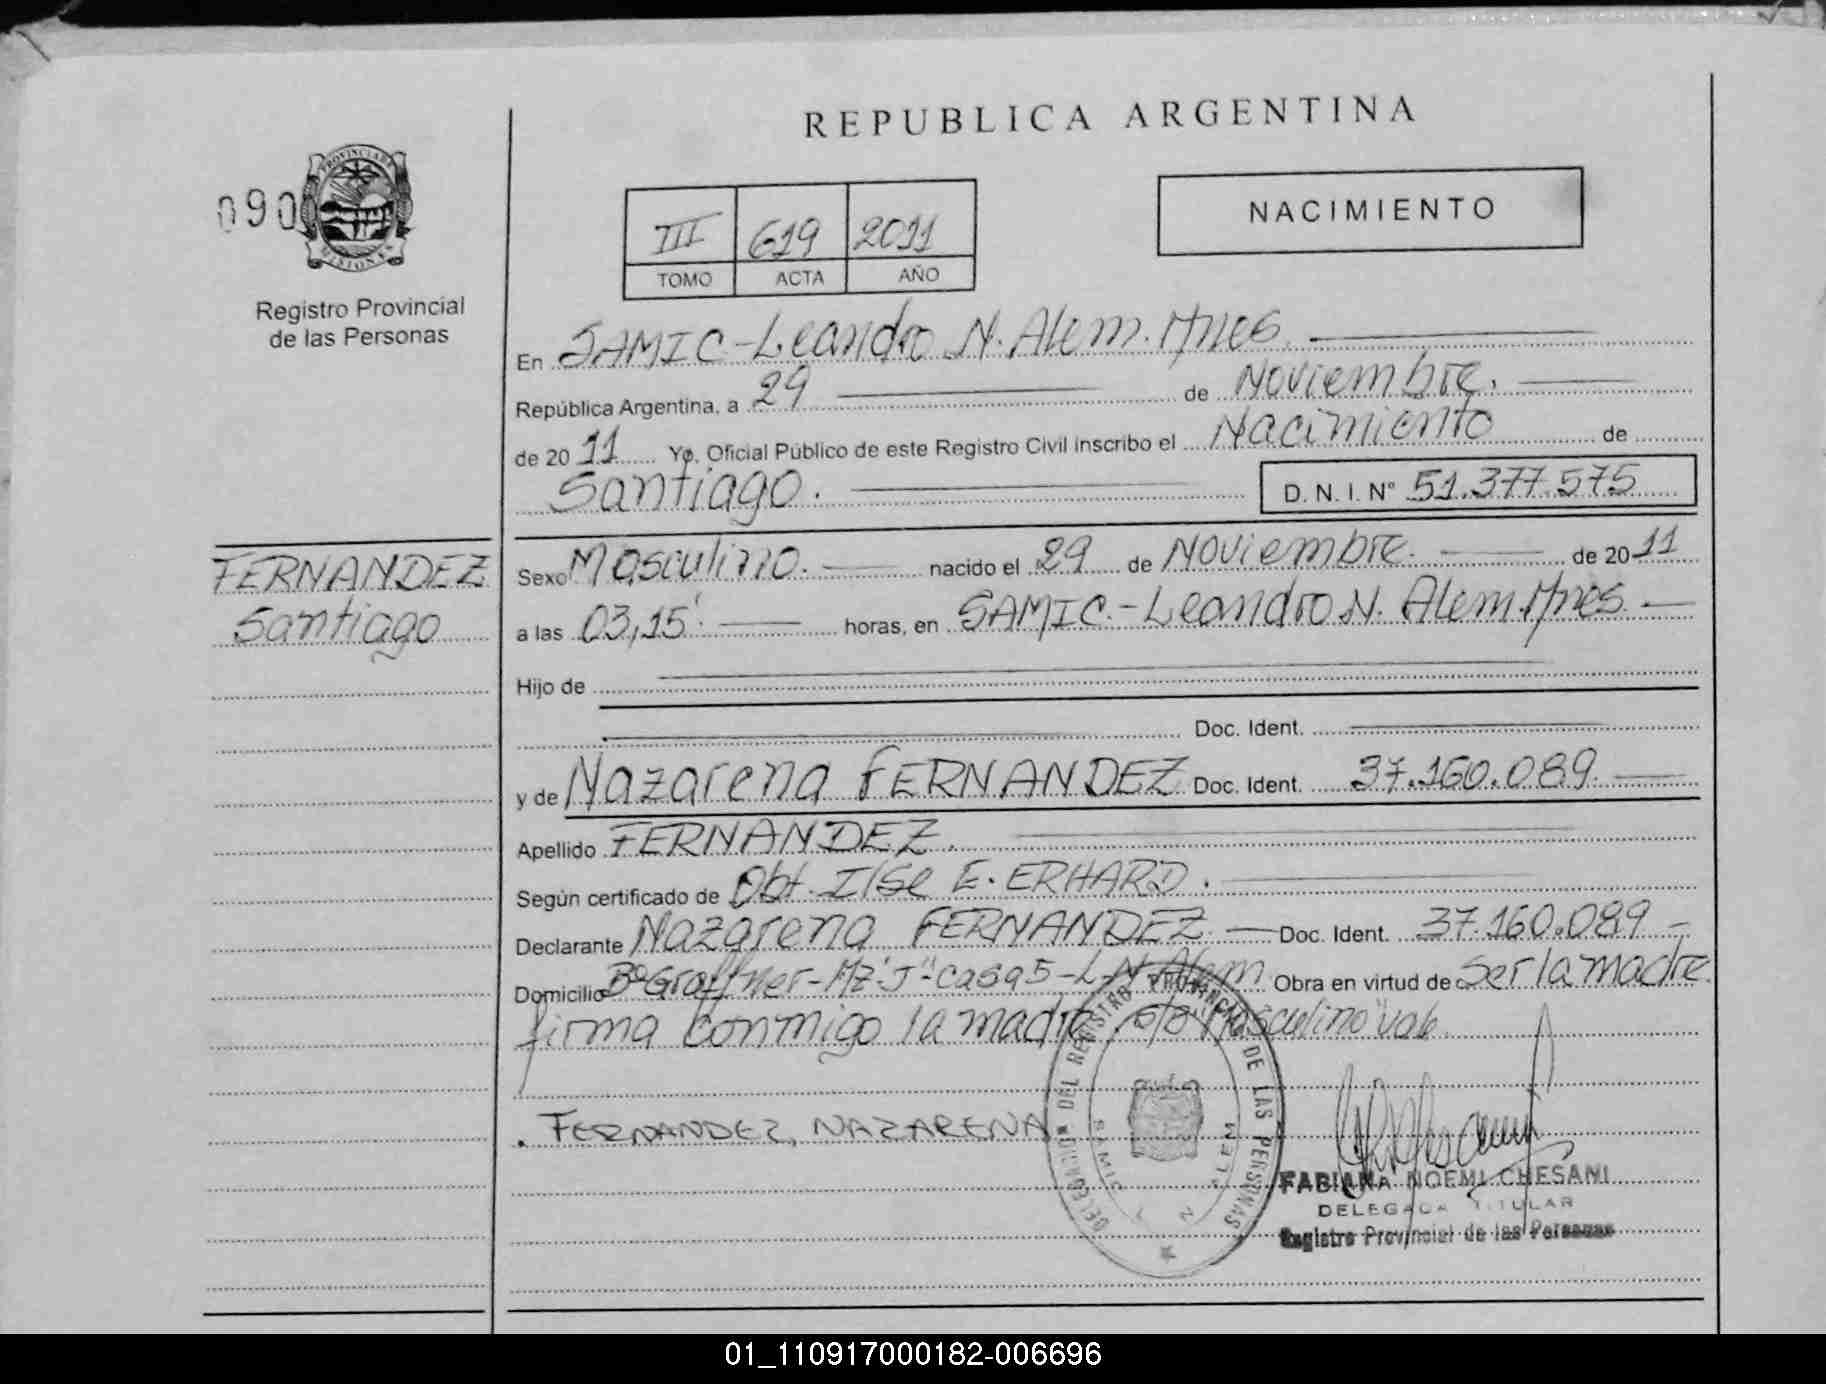 REPUBLICA ARGENTINA
090
PROVINCIA DE
MISIONES
Registro Provincial
de las Personas
III 619 2011
TOMO ACTA AÑO
NACIMIENTO
En SAMIC - Leandro N. Alem. Mnes.
República Argentina, a 29 de Noviembre.
de 2011 Yo, Oficial Público de este Registro Civil inscribo el Nacimiento de
Santiago. D. N. I. N° 51.377.575
FERNANDEZ
Santiago
Sexo Masculino. nacido el 29 de Noviembre. de 2011
a las 03,15' horas, en SAMIC. - Leandro N. Alem. Mnes.
Hijo de
Doc. Ident.
y de Nazarena FERNANDEZ Doc. Ident. 37.160.089.
Apellido FERNANDEZ.
Según certificado de Obt. Ilse E. ERHARD.
Declarante Nazarena FERNANDEZ Doc. Ident. 37.160.089
Domicilio Bº Graffner - Mz "J" - casa 5 - L. N. Alem Obra en virtud de ser la madre.
firma conmigo la madre. s/o "Masculino" vale.
. FERNANDEZ, NAZARENA
DELEGACION DEL REGISTRO PROVINCIAL DE LAS PERSONAS
SAMIC L N ALEM
FABIANA NOEMI CHESANI
DELEGADA TITULAR
Registro Provincial de las Personas
01_110917000182-006696